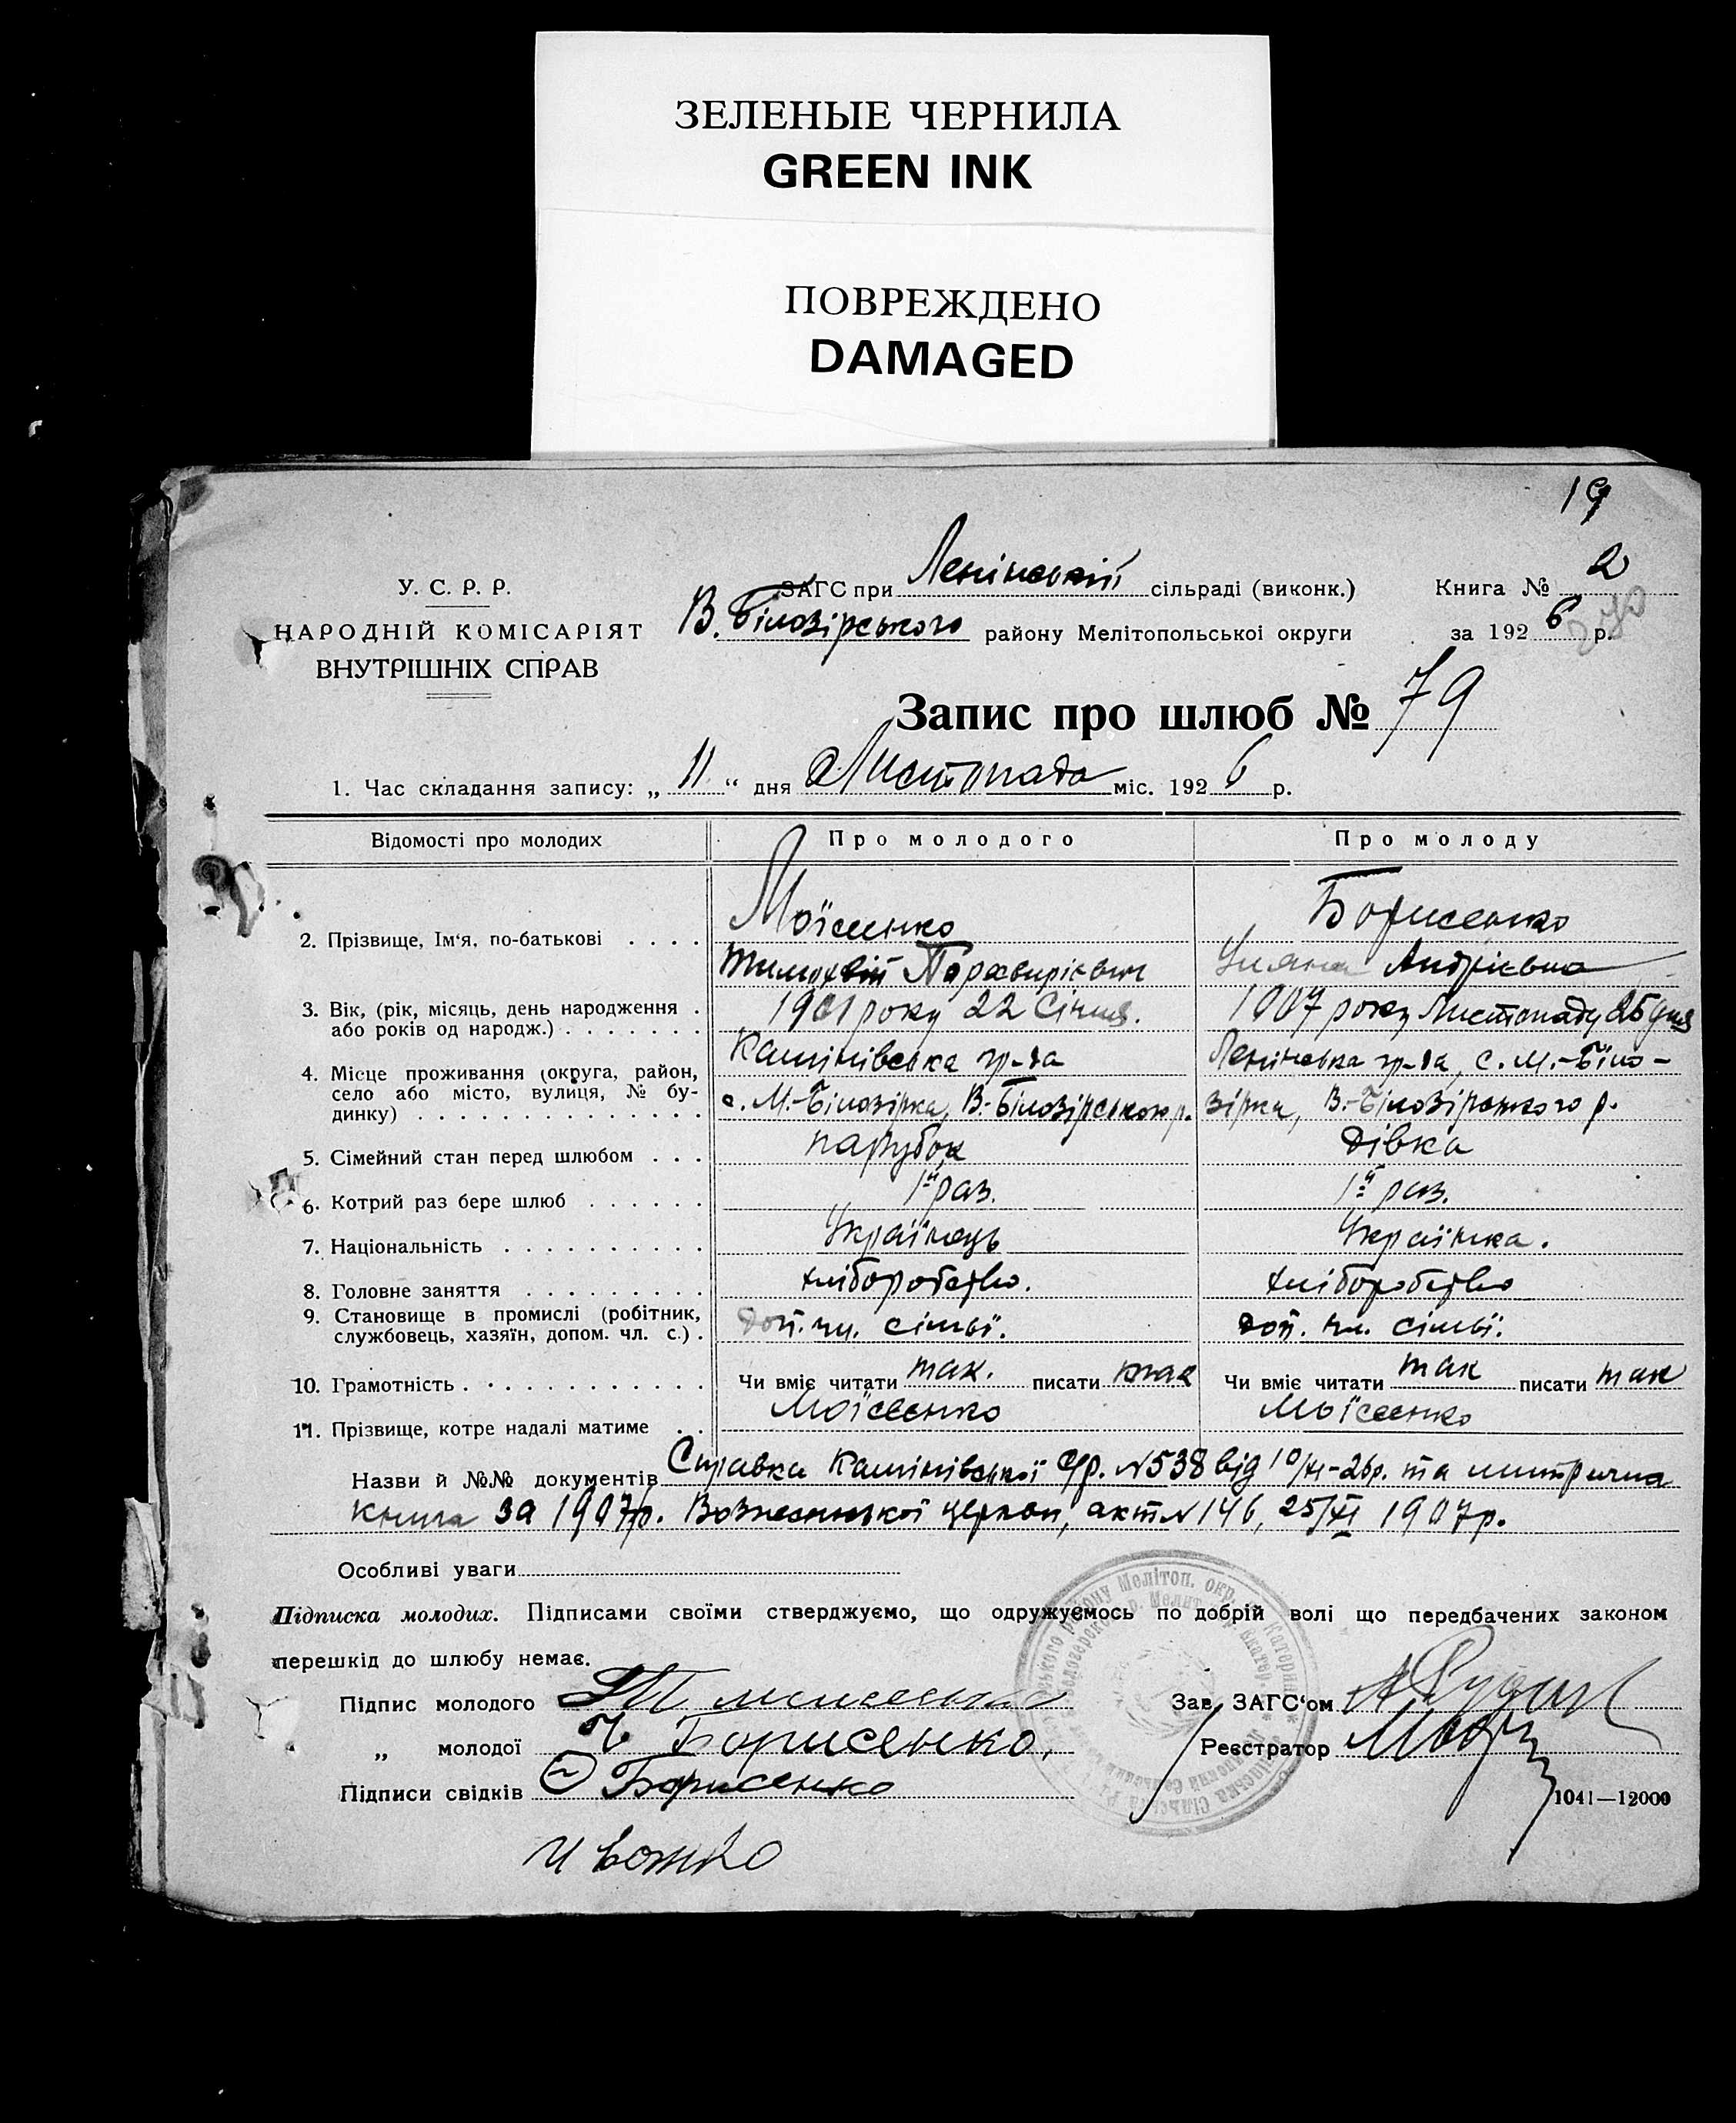 ЗЕЛЕНЫЕ ЧЕРНИЛА
GREEN INK
ПОВРЕЖДЕНО
DAMAGED
19
У. С. Р. Р.
НАРОДНІЙ КОМІСАРІЯТ
ВНУТРІШНІХ СПРАВ
ЗАГС при Ленінській сільраді (виконк.)
В. Білозірського району Мелітопольської округи
Книга № 2
за 1926 р.
Запис про шлюб № 79
1. Час складання запису: „ 11 “ дня Листопада міс. 1926 р.
Відомості про молодих Про молодого Про молоду
2. Прізвище, Ім‘я, по-батькові . . . . Моїсеенко Борисенко
Тимохвій Порхвирієвич Уляна Андрієвна
3. Вік, (рік, місяць, день народження . 1901 року 22 Січня. 1907 року Листопаду 25 дня
або років од народж.) . . . . . . .
4. Місце проживання (округа, район, Калінівська гр-да Ленінська гр-да, с. М.-Біло-
село або місто, вулиця, № бу- с. М.-Білозірка, В.-Білозірського р. зірка, В.-Білозірського р.
динку) . . . . . . . . . . . . . .
5. Сімейний стан перед шлюбом . . . парубок дівка
6. Котрий раз бере шлюб . . . . . . 1й раз. 1й раз.
7. Національність . . . . . . . . . . Українець Українка.
8. Головне заняття . . . . . . . . . хліборобство. хліборобство
9. Становище в промислі (робітник, доп. чл. сімьї. доп. чл. сімьї.
службовець, хазяїн, допом. чл. с.) .
10. Грамотність . . . . . . . . . . . . Чи вміє читати так. писати так Чи вміє читати так писати так
11. Прізвище, котре надалі матиме . . Моїсеенко Моїсеенко
Назви й №№ документів Справка Калінівської с/р. №538 від 10/XI-26р. та митрична
книга за 1907р. Вознесенської церкви, акт №146, 25/XI 1907р.
Особливі уваги
Підписка молодих. Підписами своїми стверджуємо, що одружуємось по добрій волі що передбачених законом
перешкід до шлюбу немає.
Підпис молодого
Зав. ЗАГС‘ом
„ молодої У Борисенко.
Реєстратор
Підписи свідків Борисенко
1041—12000